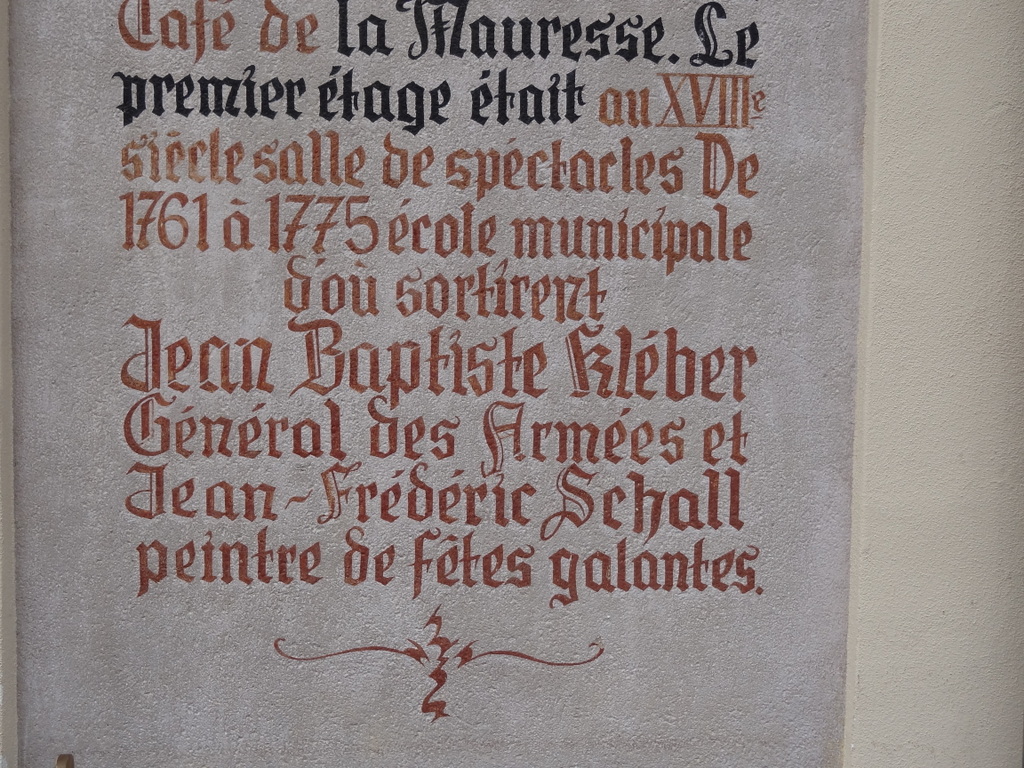 Café de la Mauresse. Le
premier étage était au XVIIIe
siècle salle de spéctacles De
1761 à 1775 école municipale
d'où sortirent
Jean Baptiste Kléber
Général des Armées et
Jean-Frédéric Schall
peintre de fêtes galantes.